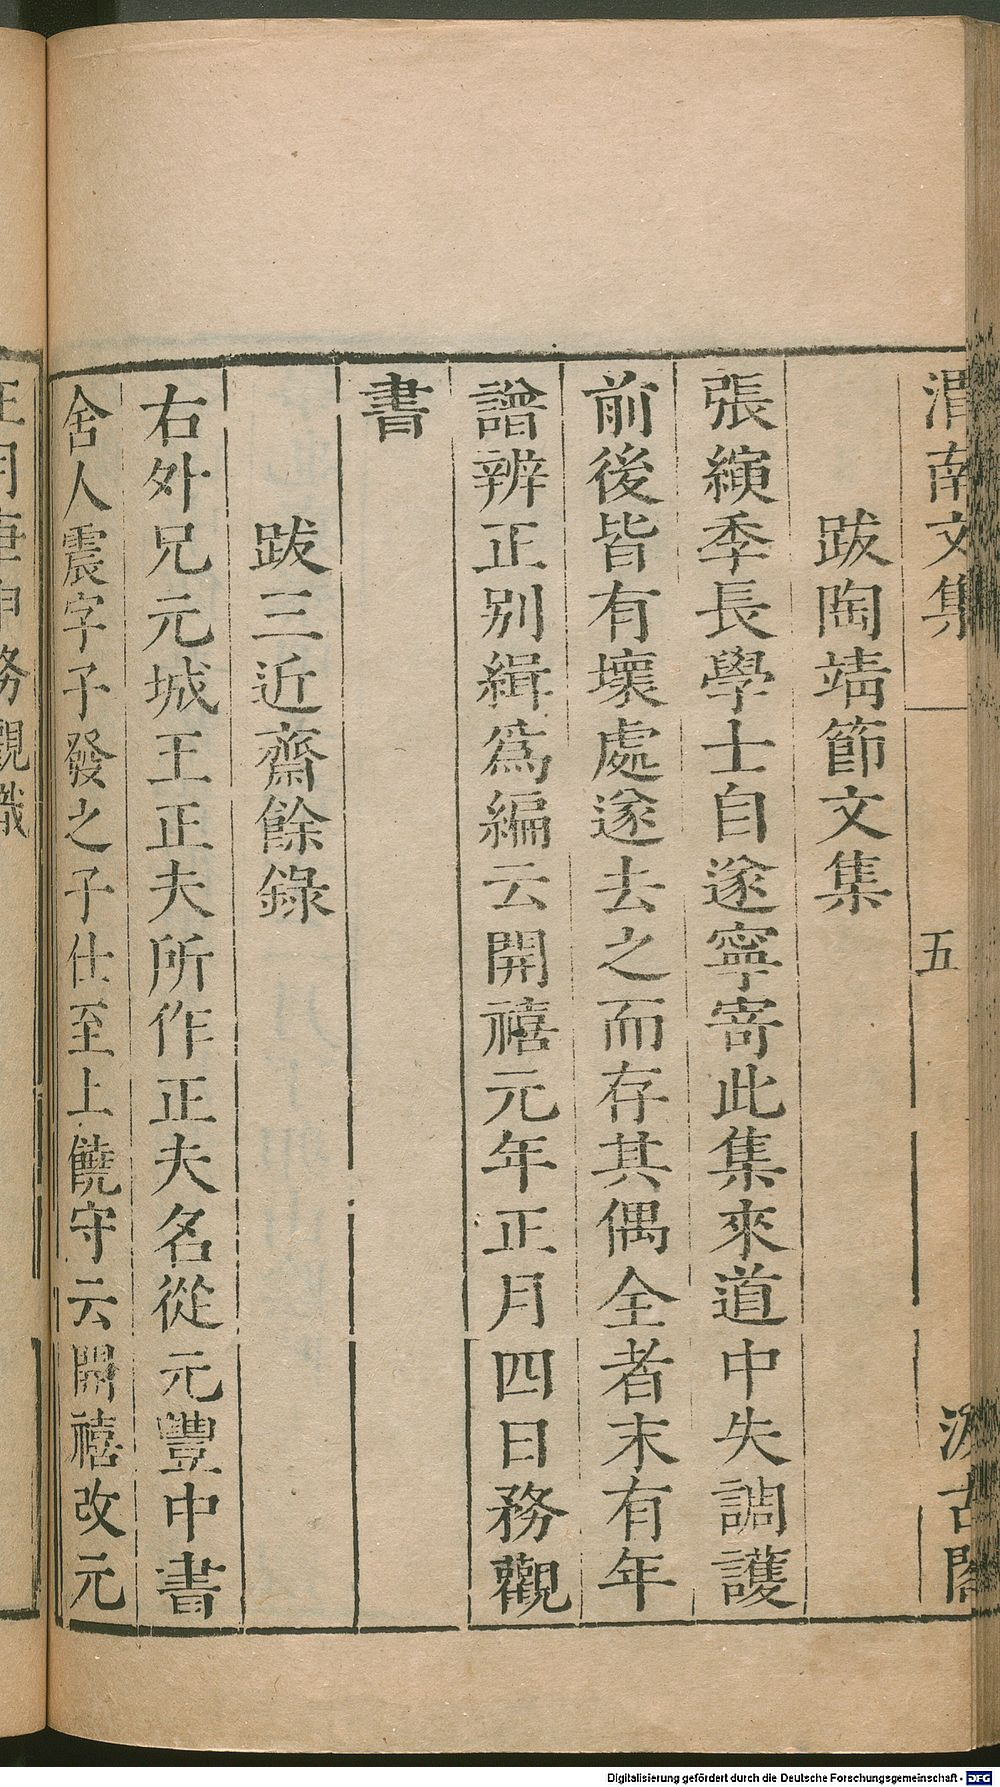 渭南文集 五 汲古閣
跋陶靖節文集
張縯季長學士自遂寧寄此集來道中失調護
前後皆有壞處遂去之而存其偶全者末有年
譜辨正別緝爲編云開禧元年正月四日務觀
書
跋三近齋餘錄
右外兄元城王正夫所作正夫名從元豐中書
舍人震字子發之子仕至上饒守云開禧改元
正月庚申務觀識
Digitalisierung gefördert durch die Deutsche Forschungsgemeinschaft - DFG